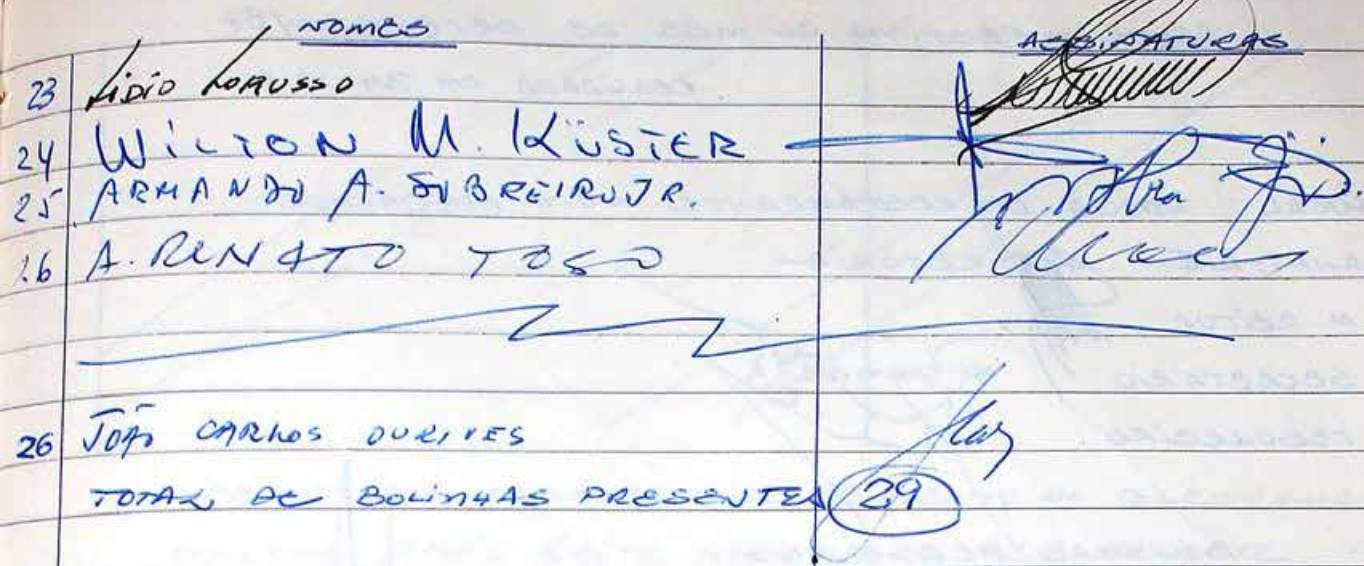 NOMES ASSINATURAS
23 Lidio Lorusso
24 WILTON M. KÜSTER
25 ARMANDO A. SUBREIRO JR.
26 A. RENATO TOSO
26 JOÃO CARLOS OURIVES
TOTAL DE BOLINHAS PRESENTES 29